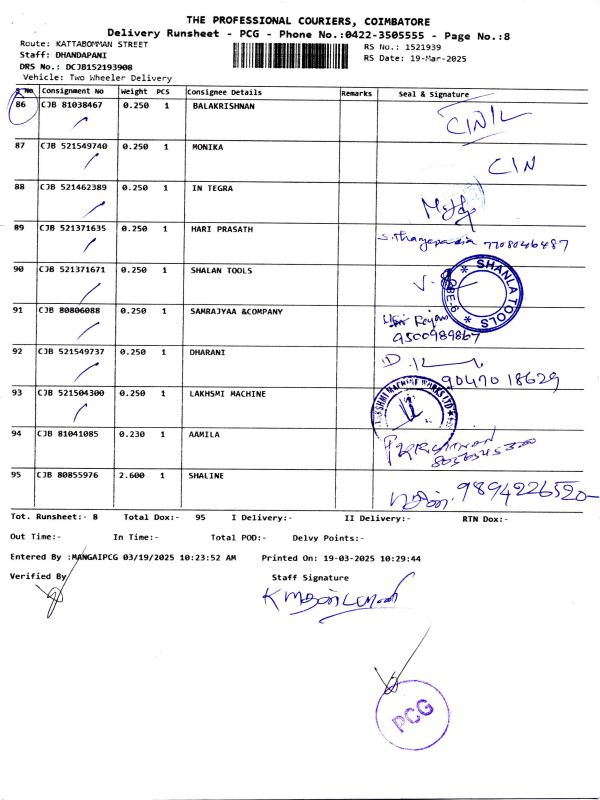 THE PROFESSIONAL COURIERS, COIMBATORE
Delivery Runsheet - PCG - Phone No.:0422-3505555 - Page No.:8
Route: KATTABOMMAN STREET
RS No.: 1521939
Staff: DHANDAPANI
RS Date: 19-Mar-2025
DRS No.: DCJB152193908
Vehicle: Two Wheeler Delivery
S No Consignment No Weight PCS Consignee Details Remarks Seal & Signature
86 CJB 81038467 0.250 1 BALAKRISHNAN
87 CJB 521549740 0.250 1 MONIKA CIN
88 CJB 521462389 0.250 1 IN TEGRA
89 CJB 521371635 0.250 1 HARI PRASATH 7708046487
90 CJB 521371671 0.250 1 SHALAN TOOLS SHANLA TOOLS
91 CJB 80806088 0.250 1 SAMRAJYAA &COMPANY
9500989867
92 CJB 521549737 0.250 1 DHARANI
9047018629
93 CJB 521504300 0.250 1 LAKHSMI MACHINE LAKSHMI MACHINE WORKS LTD
94 CJB 81041085 0.230 1 AAMILA
95 CJB 80855976 2.600 1 SHALINE 9894226520
Tot. Runsheet:- 8 Total Dox:- 95 I Delivery:- II Delivery:- RTN Dox:-
Out Time:- In Time:- Total POD:- Delvy Points:-
Entered By :MANGAIPCG 03/19/2025 10:23:52 AM Printed On: 19-03-2025 10:29:44
Verified By Staff Signature
PCG